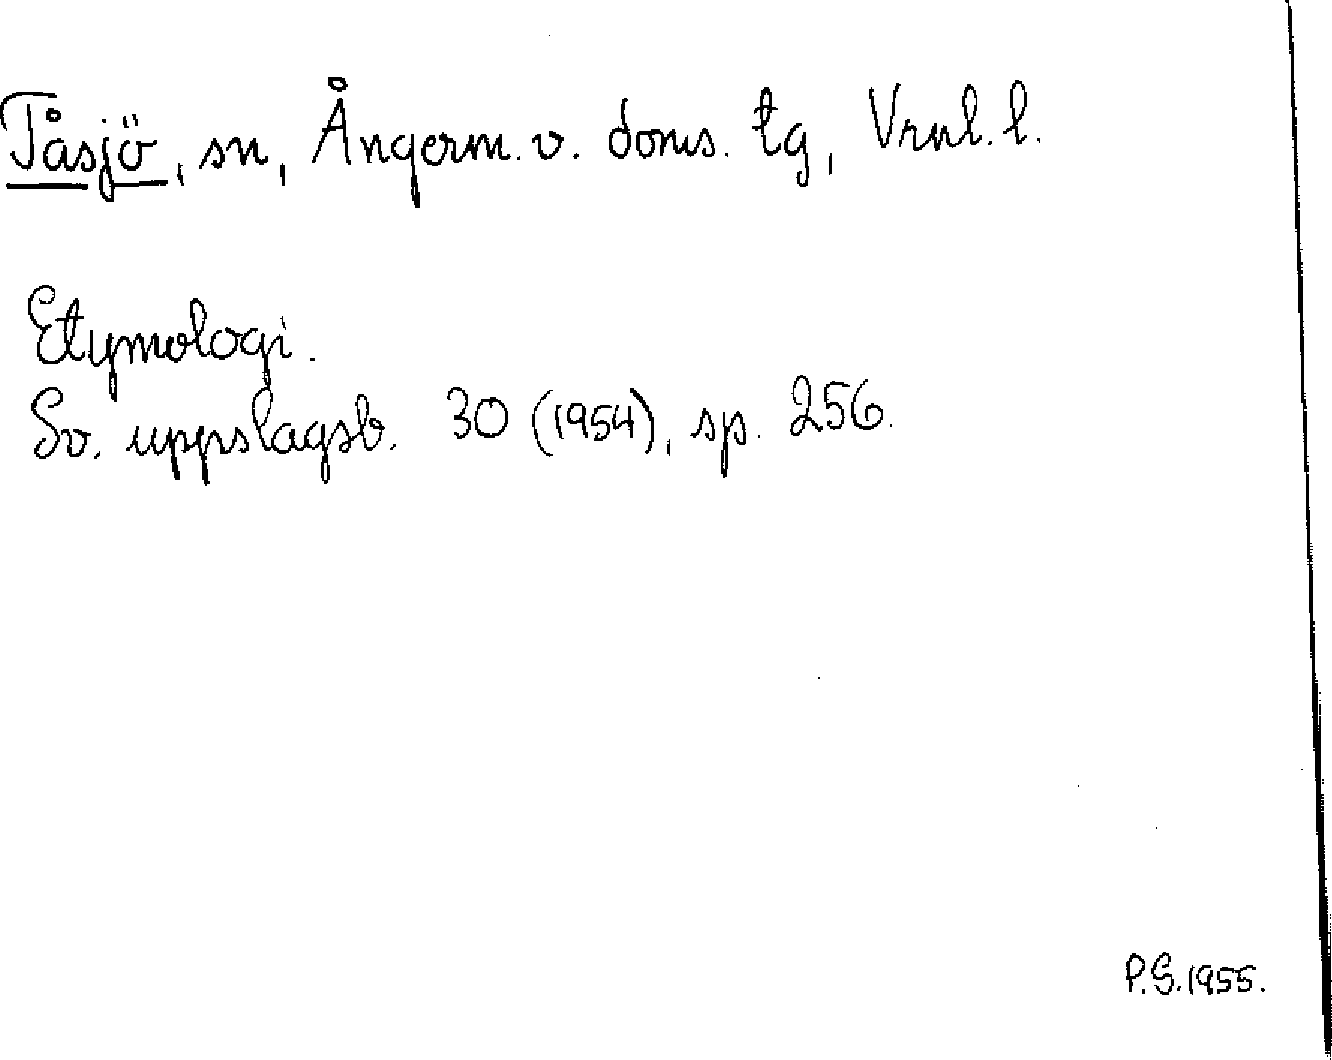 Tåsjö, sn, Ångerm. v. doms. tg, Vrnl. l.
Etymologi.
Sv. uppslagsb. 30 (1954), sp. 256.
P.S. 1955.